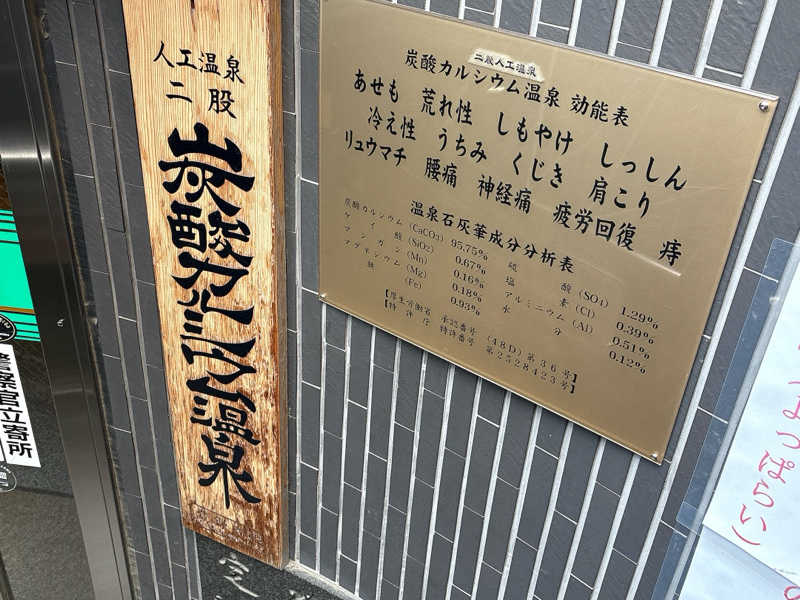 人工温泉
二股
炭酸カルシウム温泉
二股人工温泉
炭酸カルシウム温泉 効能表
あせも 荒れ性 しもやけ しっしん
冷え性 うちみ くじき 肩こり
リュウマチ 腰痛 神経痛 疲労回復 痔
温泉石灰華成分分析表
炭酸カルシウム (CaCO3) 95.75%
ケイ酸 (SiO2) 0.67%
マンガン (Mn) 0.16%
マグネシウム (Mg) 0.18%
鉄 (Fe) 0.93%
硫酸 (SO4) 1.29%
塩素 (Cl) 0.39%
アルミニウム (Al) 0.51%
水分 0.12%
【厚生労働省 承認番号 (48D)第36号】
【特許庁 特許番号 第2528423号】
警察官立寄所
よっぱらい